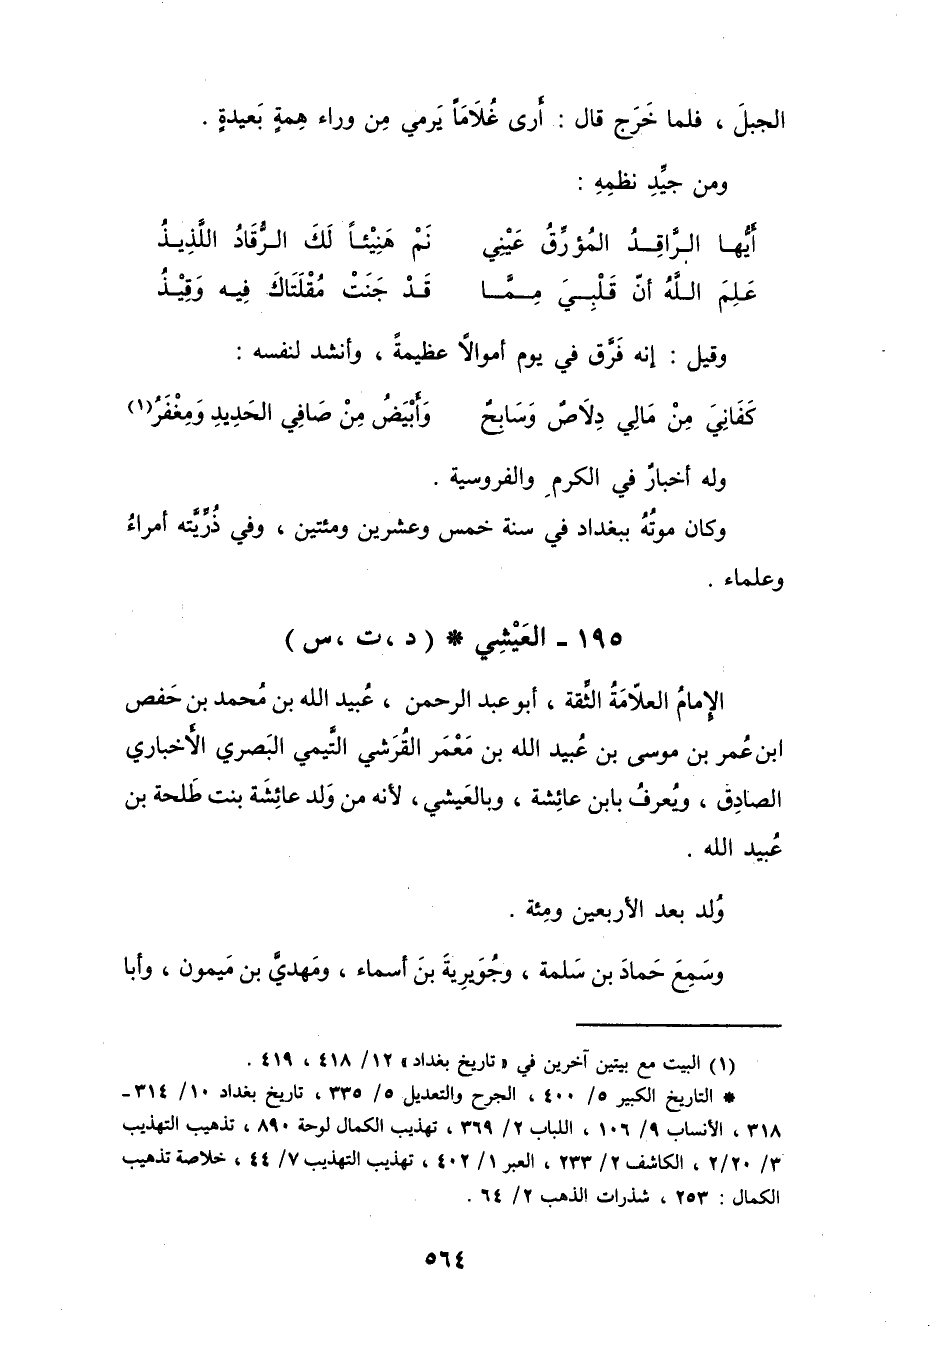 الجبلَ ، فلما خَرَج قال : أَرى غُلَامَاً يَرمي مِن وراء هِمةٍ بَعيدةٍ .
ومن جيِّدِ نظمِهِ :
أَيُّهـا الـرَّاقِـدُ المُؤرِّقُ عَيْنِي نَمْ هَنِيْئـاً لَكَ الـرُّقَادُ اللَّذِيـذُ
عَلِمَ اللَّهُ أنّ قَلْبِـيَ مِـمَّـا قَـدْ جَنَتْ مُقْلَتَاكَ فِيـه وَقِيْـذُ
وقيل : إنه فَرَّق في يوم أموالًا عظيمةً ، وأنشد لنفسه :
كَفَانِيَ مِنْ مَالِي دِلَاصٌ وَسَابِحٌ وَأَبْيَضُ مِنْ صَافِي الحَدِيدِ وَمِغْفَرُ(١)
وله أخبارٌ في الكرمِ والفروسية .
وكان موتُهُ ببغداد في سنة خمس وعشرين ومئتين ، وفي ذُرِّيَّته أمراءُ
وعلماء .
١٩٥ - العَيْشِي * ( د ،ت ،س )
الإِمامُ العلّامَةُ الثِّقة ، أبو عبد الرحمن ، عُبيد الله بن مُحمد بن حَفص
ابن عُمر بن موسى بن عُبيد الله بن مَعْمَر القُرَشي التَّيمي البَصري الأَخباري
الصادِق ، ويُعرفُ بابن عائِشة ، وبالعَيشي، لأنه من وَلد عائِشَة بنت طَلحة بن
عُبيد الله .
وُلد بعد الأربعين ومِئة .
وسَمِعَ حَمادَ بن سَلمة ، وجُوَيرِيةَ بنَ أسماء ، ومَهديَّ بن مَيمون ، وأبا
(١) البيت مع بيتين آخرين في «تاريخ بغداد» ١٢/ ٤١٨ ، ٤١٩ .
* التاريخ الكبير ٥/ ٤٠٠ ، الجرح والتعديل ٥/ ٣٣٥ ، تاريخ بغداد ١٠/ ٣١٤ـ
٣١٨ ، الأنساب ٩/ ١٠٦ ، اللباب ٢/ ٣٦٩ ، تهذيب الكمال لوحة ٨٩٠ ، تذهيب التهذيب
٣/ ٢/٢٠ ، الكاشف ٢/ ٢٣٣ ، العبر ١/ ٤٠٢ ، تهذيب التهذيب ٧/ ٤٤ ، خلاصة تذهيب
الكمال : ٢٥٣ ، شذرات الذهب ٢/ ٦٤ .
٥٦٤